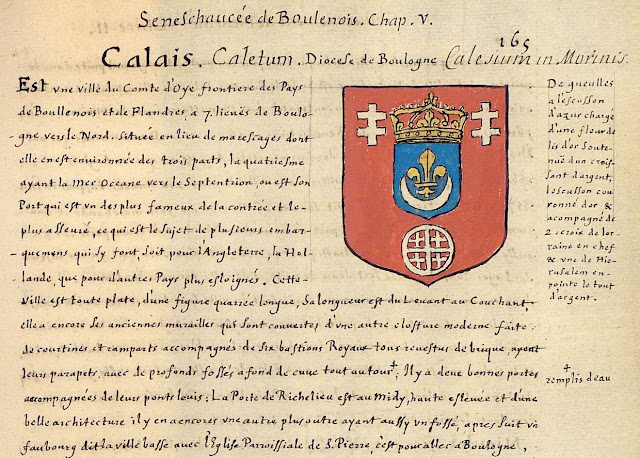 Seneschaucée de Boulenois. Chap. V.
165
Calais. Caletum. Diocese de Boulogne Calesium in Morinis.
Est vne ville du Comte d'Oye frontiere des Pays
de Boullenois et de Flandres, à 7. lieuës de Boulo-
-gne vers le Nord. située en lieu de marescages dont
elle en est environnée des trois parts, la quatriesme
ayant la Mer Oceane vers le Septentrion, ou est son
Port qui est vn des plus fameux de la contrée et le
plus asseuré, ce qui est le sujet de plusieurs embar-
-quemens, qui s'y font, soit pour l'Angleterre, la Hol-
lande, que pour d'autres Pays plus esloignés. Cette
ville est toute plate, d'une figure quarrée longue, Sa longueur est du Levant au Couchant,
elle a encore ses anciennes murailles qui sont couvertes d'vne autre closture moderne faite
de courtines et ramparts accompagnés de six bastions Royaux tous revestus de brique, ayant
leurs parapets, avec de profonds fossés a fond de cuve tout autour+; Il y a deux bonnes portes
accompagnées de leurs ponts leuis; La Porte de Richelieu est au Midy, haute eslevée et d'une
belle architecture il y en a encores vne autre plus outre ayant aussy vn fossé, apres suit vn
faubourg dit la ville basse avec l'Eglise Parroissiale de S. Pierre, c'est pour aller a Boulogne,
De gueulles
a l'escusson
d'azur chargé
d'une fleur de
lis d'or Soute-
nüe d'un crois-
sant d'argent,
l'escusson cou
ronné d'or &
acompagné de
2. croix de lor-
raine en chef
& vne de Hie-
rusalem en
pointe le tout
d'argent.
+
remplis d'eau